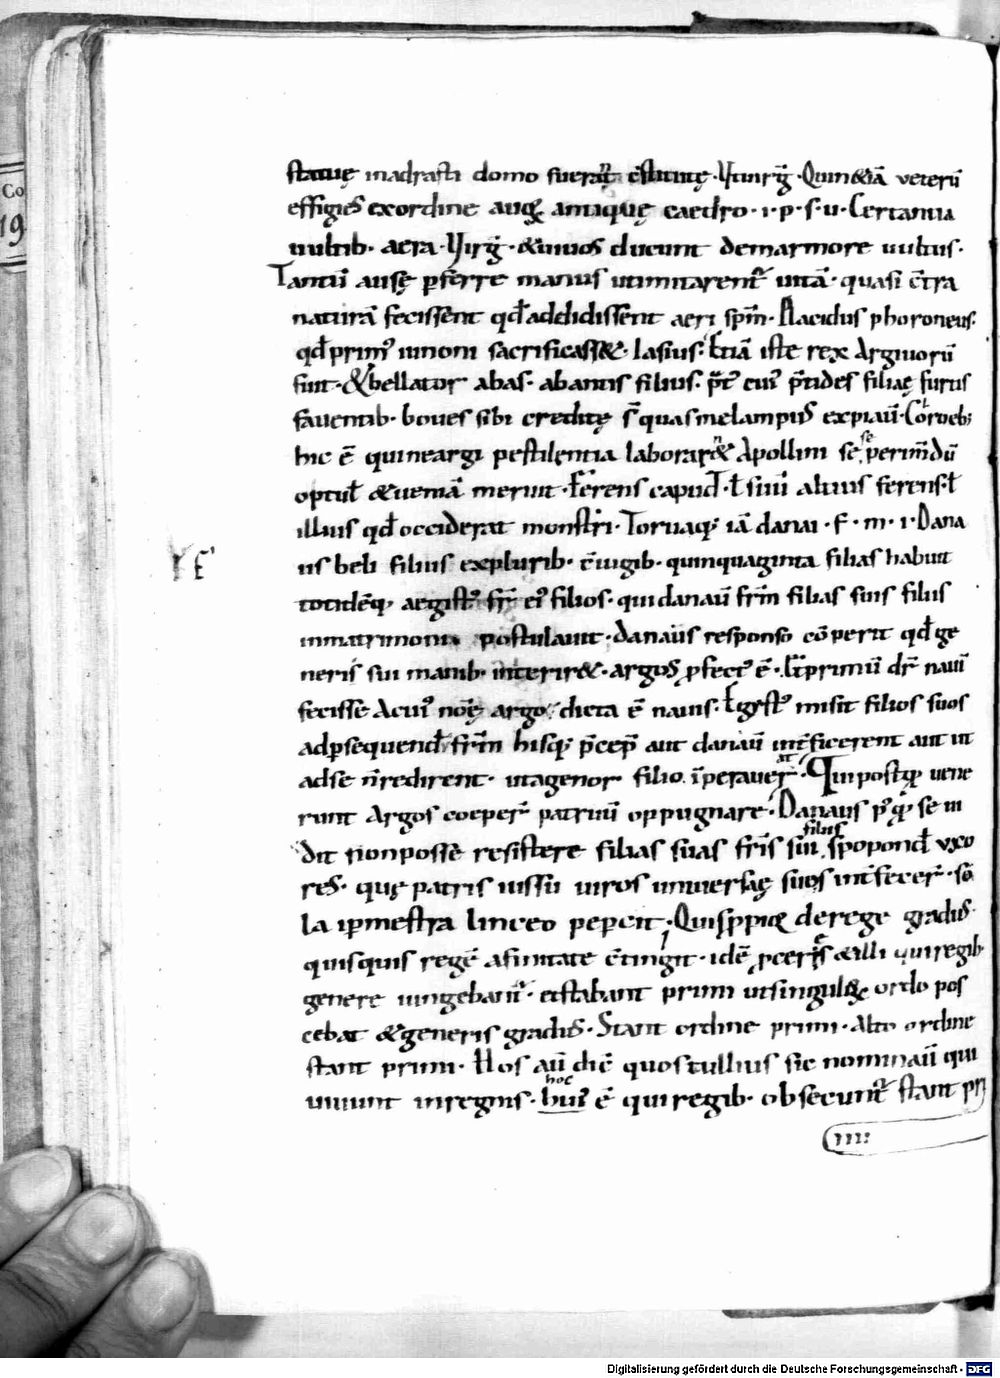 Co
19
statuę madrasti domo fuerāt cōstitutę. Vt uirḡ. Quin & iā veterū
effigies ex ordine auoꝝ antiquę caedro. i. p. s. u. Certantia
uultib. aera. Virḡ. & uiuos ducunt de marmore uultus.
Tantū ausę p̄ferre manus ut imitarent᷑ uitā. quasi c̄tra
naturā fecissent qđ addidissent aeri sp̄m. Placidus phoroneus.
qđ prim᷒ iunoni sacrificass&. Iasius. Etiā iste rex Argiuorū
fuit. & bellator abas. abantis filius. p̄t᷒ cui᷒ p̄tides filiaę furtis
fauentib. boues sibi creditę s̄ quas melampus expiauī. Coroebi
hic ē qui ne argi pestilentia laborar& Apollini se perim̄dū
optuƚ & ueniā meruit. Ferens caput. ƚ sum̄ altius ferens. ƚ
illius qđ occiderat monstri. Toruaq; iā danai. f. m. i. Dana
us beli filius ex plurib. c̄iugib. quinquaginta filias habuit
totidēq; aegist᷒ fr̄ ei᷒ filios. qui danaū fr̄m filias suis filiis
in matrimoniū postulauit. danaus responso cōperit qđ ge
neris sui manib. interir&. argos ꝓfect᷒ ē. & primū dr̄ nauī
fecisse A cui᷒ nōe argo dicta ē nauis. Egist᷒ misit filios suos
ad p̄sequenđ fr̄m hisq; p̄cep̄ aut danaū int̄ficerent aut ut
ad se n̄ redirent. ut agenor filio īperauer̄at. Qui postq̄ uene
runt Argos coeper̄ patruū oppugnare. Danaus p᷒q̄ se ui
dit non posse resistere filias suas fr̄is sui filiis spoponđ vxo
res. quę patris iussu uiros uniuersaę suos int̄fecer̄. so
la ip̄mestra linceo pepercit. Quis ppiq; de rege gradus.
quisquis regē afinitate c̄tingit. idē ꝓceres & illi qui regib.
genere iungebant᷑. et stabant primi ut singulꝝ ordo pos
cebat & generis gradus. Stant ordine primi. Alto ordine
stant primi. Hos aū dic̄ quos tullius sic nominauī qui
uiuunt in regnis. hoc hui᷒ ē qui regib. obsecunt᷑ stant pri
mi:
Digitalisierung gefördert durch die Deutsche Forschungsgemeinschaft - DFG